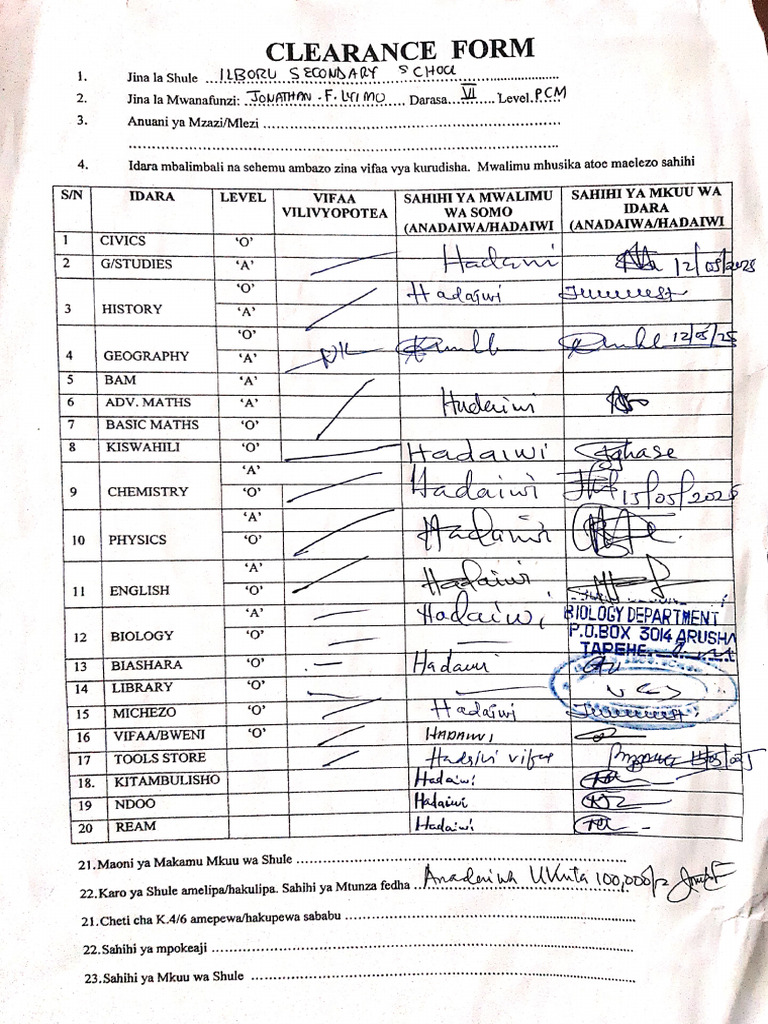 CLEARANCE FORM
1. Jina la Shule ILBORU SECONDARY SCHOOL
2. Jina la Mwanafunzi: JONATHAN .F. LYIMO Darasa VI Level PCM
3. Anuani ya Mzazi/Mlezi
4. Idara mbalimbali na sehemu ambazo zina vifaa vya kurudisha. Mwalimu mhusika atoe maelezo sahihi
S/N IDARA LEVEL VIFAA VILIVYOPOTEA SAHIHI YA MWALIMU WA SOMO (ANADAIWA/HADAIWI SAHIHI YA MKUU WA IDARA (ANADAIWA/HADAIWI
1 CIVICS 'O'
2 G/STUDIES 'A' Hadawi 12/05/2025
3 HISTORY 'O' 'A' Hadaiwi
4 GEOGRAPHY 'O' 'A' 12/05/25
5 BAM 'A'
6 ADV. MATHS 'A' Hadaiwi
7 BASIC MATHS 'O'
8 KISWAHILI 'O' Hadaiwi
9 CHEMISTRY 'A' 'O' Hadaiwi 15/05/2025
10 PHYSICS 'A' 'O' Hadaiwi
11 ENGLISH 'A' 'O' Hadaiwi
12 BIOLOGY 'A' 'O' Hadaiwi BIOLOGY DEPARTMENT
P.O.BOX 3014 ARUSHA
TAREHE
13 BIASHARA 'O' Hadawi
14 LIBRARY 'O'
15 MICHEZO 'O' Hadaiwi
16 VIFAA/BWENI 'O' HADAIWI
17 TOOLS STORE vifaa
18. KITAMBULISHO Hadaiwi
19 NDOO Hadaiwi
20 REAM Hadaiwi
21. Maoni ya Makamu Mkuu wa Shule
22. Karo ya Shule amelipa/hakulipa. Sahihi ya Mtunza fedha Anadaiwa 100,000/=
21. Cheti cha K.4/6 amepewa/hakupewa sababu
22. Sahihi ya mpokeaji
23. Sahihi ya Mkuu wa Shule